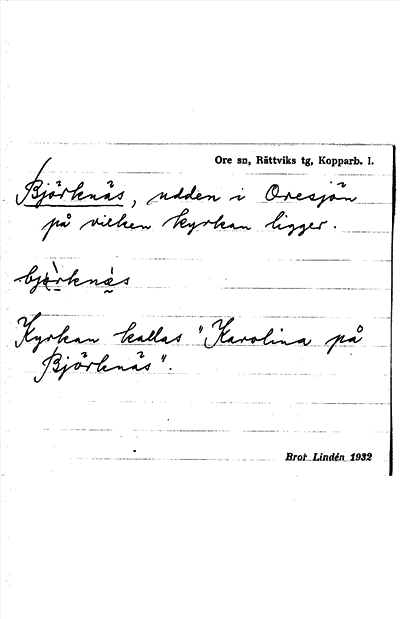 Ore sn, Rättviks tg, Kopparb. l.
Björknäs, udden i Oresjön
på vilken kyrkan ligger.
Kyrkan kallas "Karolina på
Björknäs".
Bror Lindén 1932